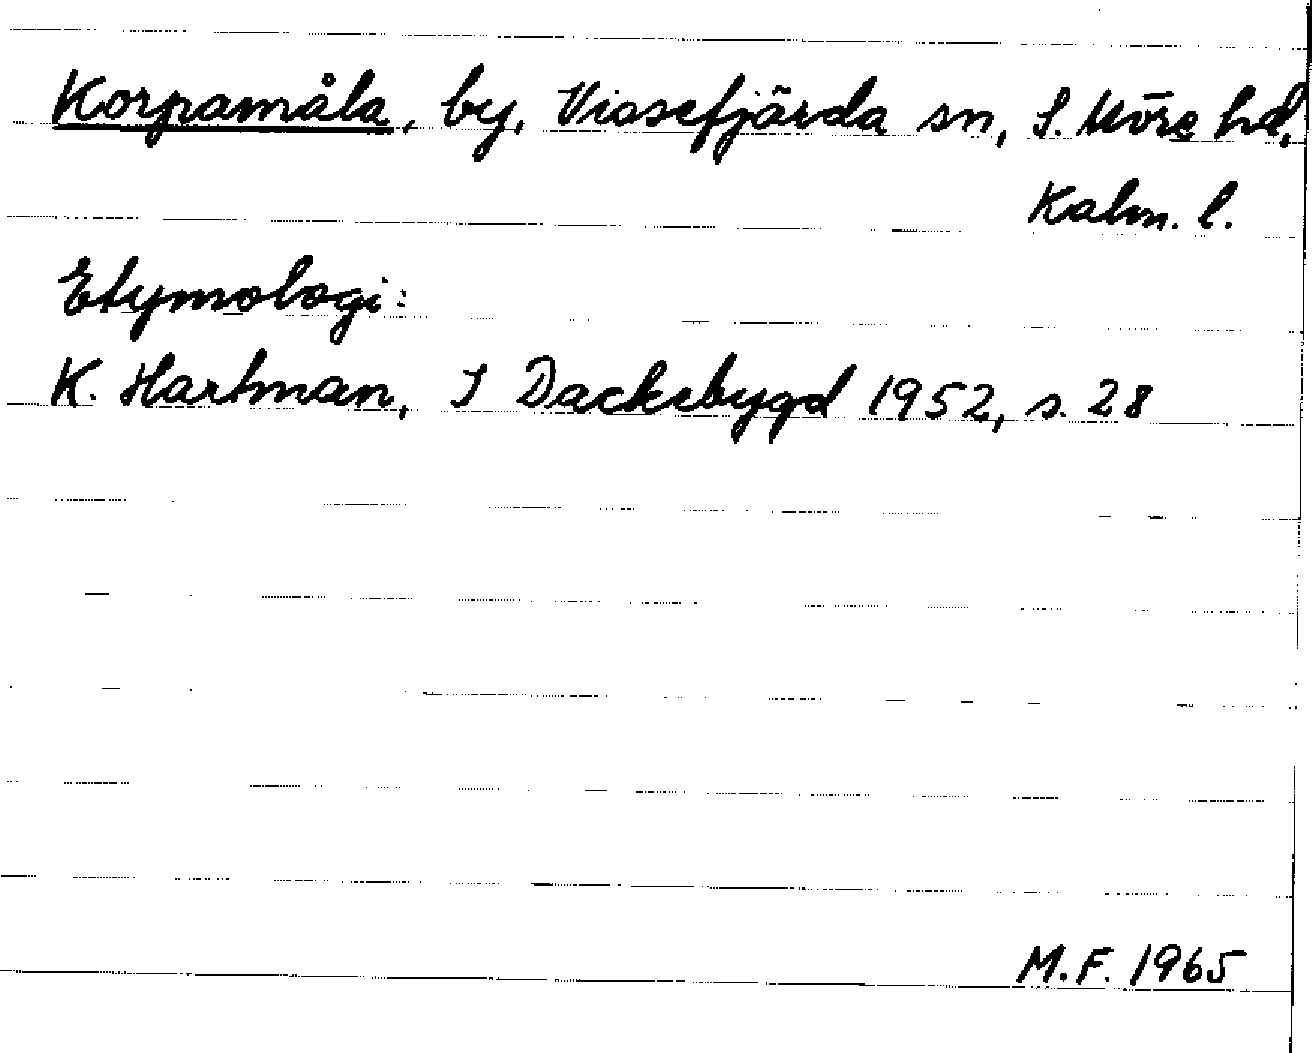 Korpamåla, by, Vissefjärda sn, S. Möre hd,
Kalm. l.
Etymologi:
K. Hartman, I Dackebygd 1952, s. 28
M.F. 1965